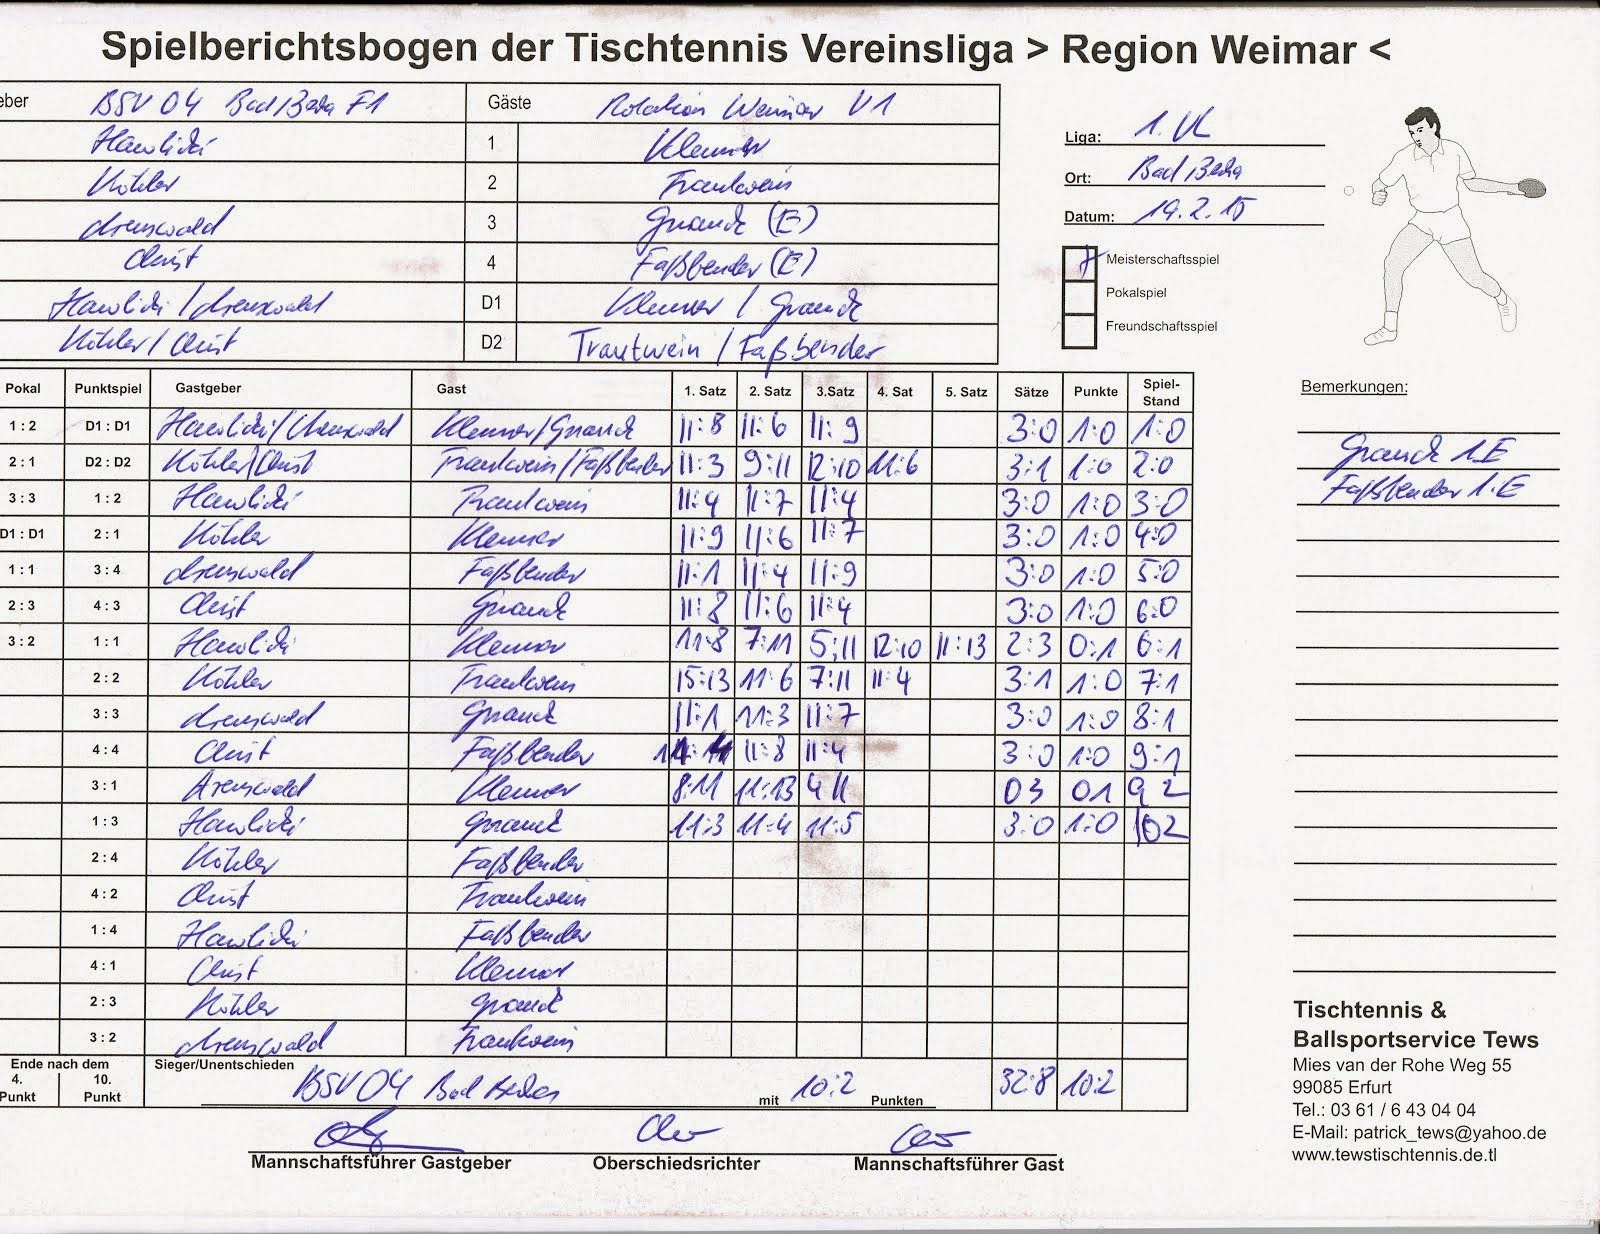 Spielberichtsbogen der Tischtennis Vereinsliga > Region Weimar <
eber BSV 04 Bad Berka F1 Gäste Rotation Weimar V1
Hawlicki 1 Klemer
Köhler 2 Trautwein
Arenswald 3 Granck (E)
Christ 4 Faßbender (E)
Hawlicki / Arenswald D1 Klemer / Granck
Köhler / Christ D2 Trautwein / Faßbender
Liga: 1. VL
Ort: Bad Berka
Datum: 19.2.15
Meisterschaftsspiel
Pokalspiel
Freundschaftsspiel
Pokal Punktspiel Gastgeber Gast 1. Satz 2. Satz 3.Satz 4. Sat 5. Satz Sätze Punkte Spiel-Stand
1 : 2 D1 : D1 Hawlicki/Arenswald Klemer/Granck 11:8 11:6 11:9 3:0 1:0 1:0
2 : 1 D2 : D2 Köhler/Christ Trautwein/Faßbender 11:3 9:11 12:10 11:6 3:1 1:0 2:0
3 : 3 1 : 2 Hawlicki Trautwein 11:4 11:7 11:4 3:0 1:0 3:0
D1 : D1 2 : 1 Köhler Klemer 11:9 11:6 11:7 3:0 1:0 4:0
1 : 1 3 : 4 Arenswald Faßbender 11:1 11:4 11:9 3:0 1:0 5:0
2 : 3 4 : 3 Christ Granck 11:8 11:6 11:4 3:0 1:0 6:0
3 : 2 1 : 1 Hawlicki Klemer 11:8 7:11 5:11 12:10 11:13 2:3 0:1 6:1
2 : 2 Köhler Trautwein 15:13 11:6 7:11 11:4 3:1 1:0 7:1
3 : 3 Arenswald Granck 11:1 11:3 11:7 3:0 1:0 8:1
4 : 4 Christ Faßbender 11:8 11:4 3:0 1:0 9:1
3 : 1 Arenswald Klemer 8:11 11:13 4 11 0 3 0 1 9 2
1 : 3 Hawlicki Granck 11:3 11:4 11:5 3:0 1:0 10 2
2 : 4 Köhler Faßbender
4 : 2 Christ Trautwein
1 : 4 Hawlicki Faßbender
4 : 1 Christ Klemer
2 : 3 Köhler Granck
3 : 2 Arenswald Trautwein
Ende nach dem Sieger/Unentschieden
4. Punkt 10. Punkt BSV 04 Bad Berka mit 10:2 Punkten 32:8 10:2
Mannschaftsführer Gastgeber Oberschiedsrichter Mannschaftsführer Gast
Bemerkungen:
Granck 1.E
Faßbender 1.E
Tischtennis &
Ballsportservice Tews
Mies van der Rohe Weg 55
99085 Erfurt
Tel.: 03 61 / 6 43 04 04
E-Mail: patrick_tews@yahoo.de
www.tewstischtennis.de.tl